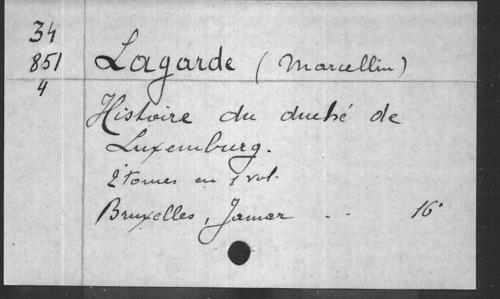 34
851
4
Lagarde (Marcellin)
Histoire du duché de
Luxemburg.
2 tomes en 1 vol.
Bruxelles, Jamar . . 16°